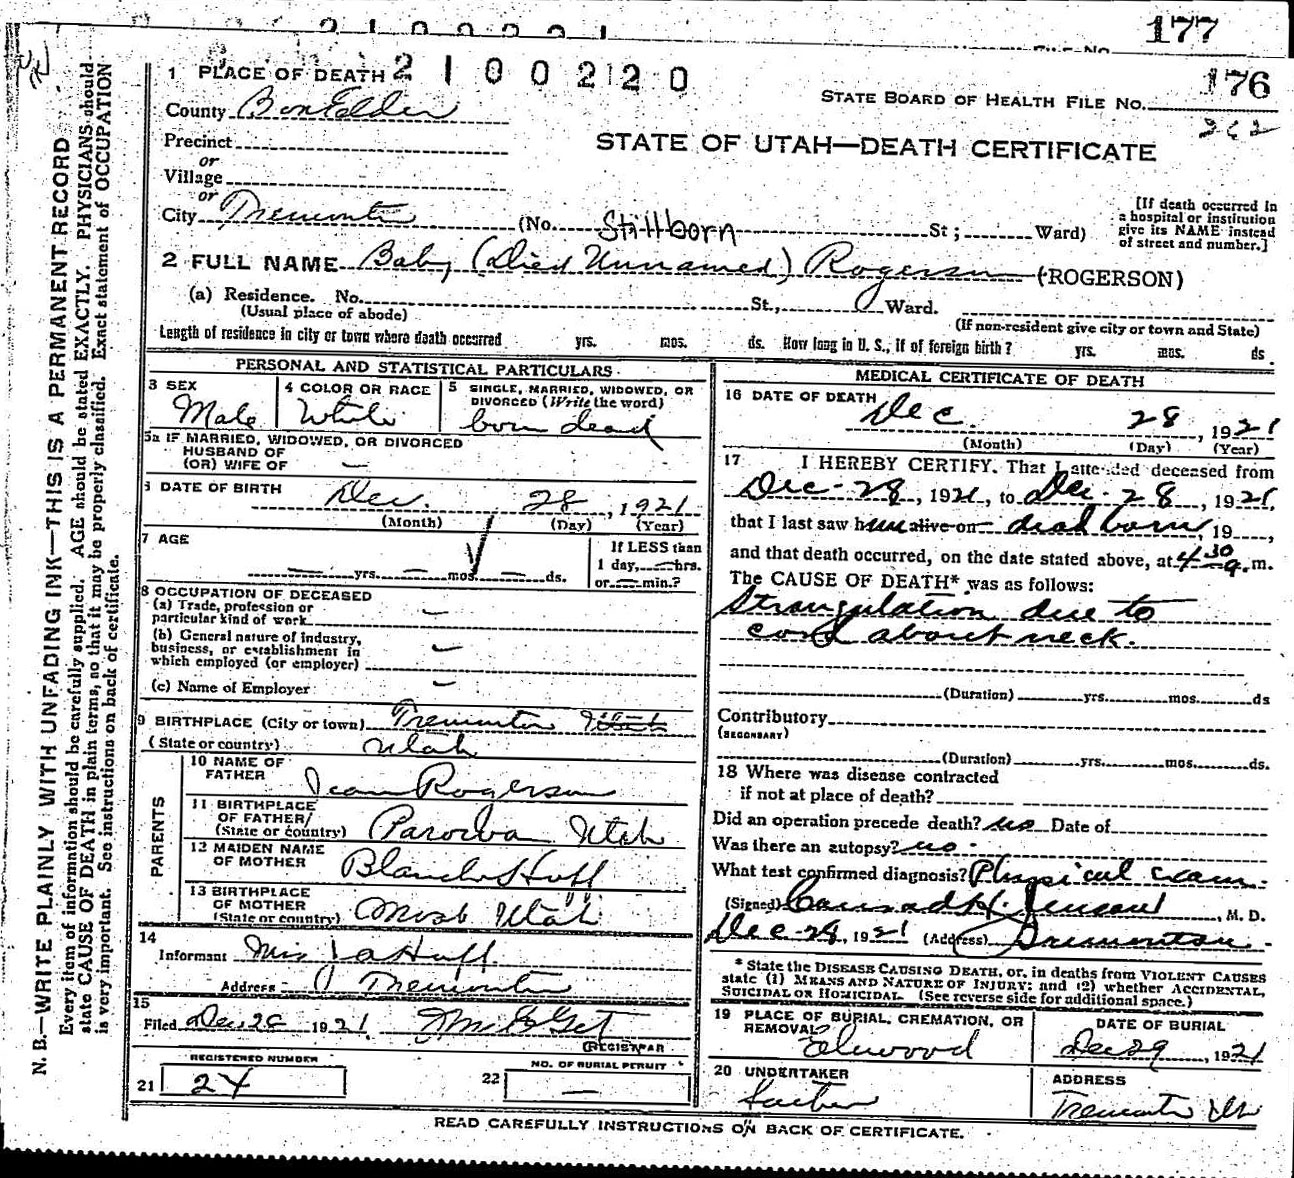 177
FILE NO.
1 PLACE OF DEATH 2100220
176
STATE BOARD OF HEALTH FILE NO.
362
County Box Elder
STATE OF UTAH—DEATH CERTIFICATE
Precinct
or
Village
or
City Tremonton (No. Stillborn St; Ward)
[If death occurred in
a hospital or institution
give its NAME instead
of street and number.]
2 FULL NAME Baby (Died Unnamed) Rogerson (ROGERSON)
(a) Residence. No. St., Ward.
(Usual place of abode)
(If non-resident give city or town and State)
Length of residence in city or town where death occurred yrs. mos. ds. How long in U. S., if of foreign birth? yrs. mos. ds.
PERSONAL AND STATISTICAL PARTICULARS
3 SEX
Male
4 COLOR OR RACE
White
5 SINGLE, MARRIED, WIDOWED, OR
DIVORCED (Write the word)
born dead
5a IF MARRIED, WIDOWED, OR DIVORCED
HUSBAND OF
(OR) WIFE OF —
6 DATE OF BIRTH Dec. 28, 1921
(Month) (Day) (Year)
7 AGE
— yrs. — mos. — ds.
If LESS than
1 day, — hrs.
or — min.?
8 OCCUPATION OF DECEASED
(a) Trade, profession or
particular kind of work —
(b) General nature of industry,
business, or establishment in
which employed (or employer) —
(c) Name of Employer —
9 BIRTHPLACE (City or town) Tremonton Utah
(State or country) Utah
PARENTS
10 NAME OF
FATHER Rogerson
11 BIRTHPLACE
OF FATHER
(State or country) Parowan Utah
12 MAIDEN NAME
OF MOTHER Blanche Huff
13 BIRTHPLACE
OF MOTHER
(State or country) Moab Utah
14
Informant Huff
Address Tremonton
15
Filed Dec. 1921
REGISTRAR
REGISTERED NUMBER
21 24
NO. OF BURIAL PERMIT
22 —
MEDICAL CERTIFICATE OF DEATH
16 DATE OF DEATH
Dec. 28, 1921
(Month) (Day) (Year)
17 I HEREBY CERTIFY, That I attended deceased from
Dec-28, 1921, to Dec. 28, 1921,
that I last saw him alive on dead born, 19,
and that death occurred, on the date stated above, at 4 30 a. m.
The CAUSE OF DEATH* was as follows:
Strangulation due to
cord about neck.
(Duration) yrs. mos. ds
Contributory
(SECONDARY)
(Duration) yrs. mos. ds.
18 Where was disease contracted
if not at place of death?
Did an operation precede death? no Date of
Was there an autopsy? no.
What test confirmed diagnosis? Physical exam.
(Signed) Conrad H. Jenson, M. D.
Dec-28, 1921 (Address) Tremonton.
* State the DISEASE CAUSING DEATH, or, in deaths from VIOLENT CAUSES
state (1) MEANS AND NATURE OF INJURY; and (2) whether ACCIDENTAL,
SUICIDAL OR HOMICIDAL. (See reverse side for additional space.)
19 PLACE OF BURIAL, CREMATION, OR
REMOVAL
Elwood
DATE OF BURIAL
Dec 29, 1921
20 UNDERTAKER
Father
ADDRESS
Tremonton Ut
READ CAREFULLY INSTRUCTIONS ON BACK OF CERTIFICATE.
N. B.—WRITE PLAINLY WITH UNFADING INK—THIS IS A PERMANENT RECORD
Every item of information should be carefully supplied. AGE should be stated EXACTLY. PHYSICIANS should
state CAUSE OF DEATH in plain terms, so that it may be properly classified. Exact statement of OCCUPATION
is very important. See instructions on back of certificate.